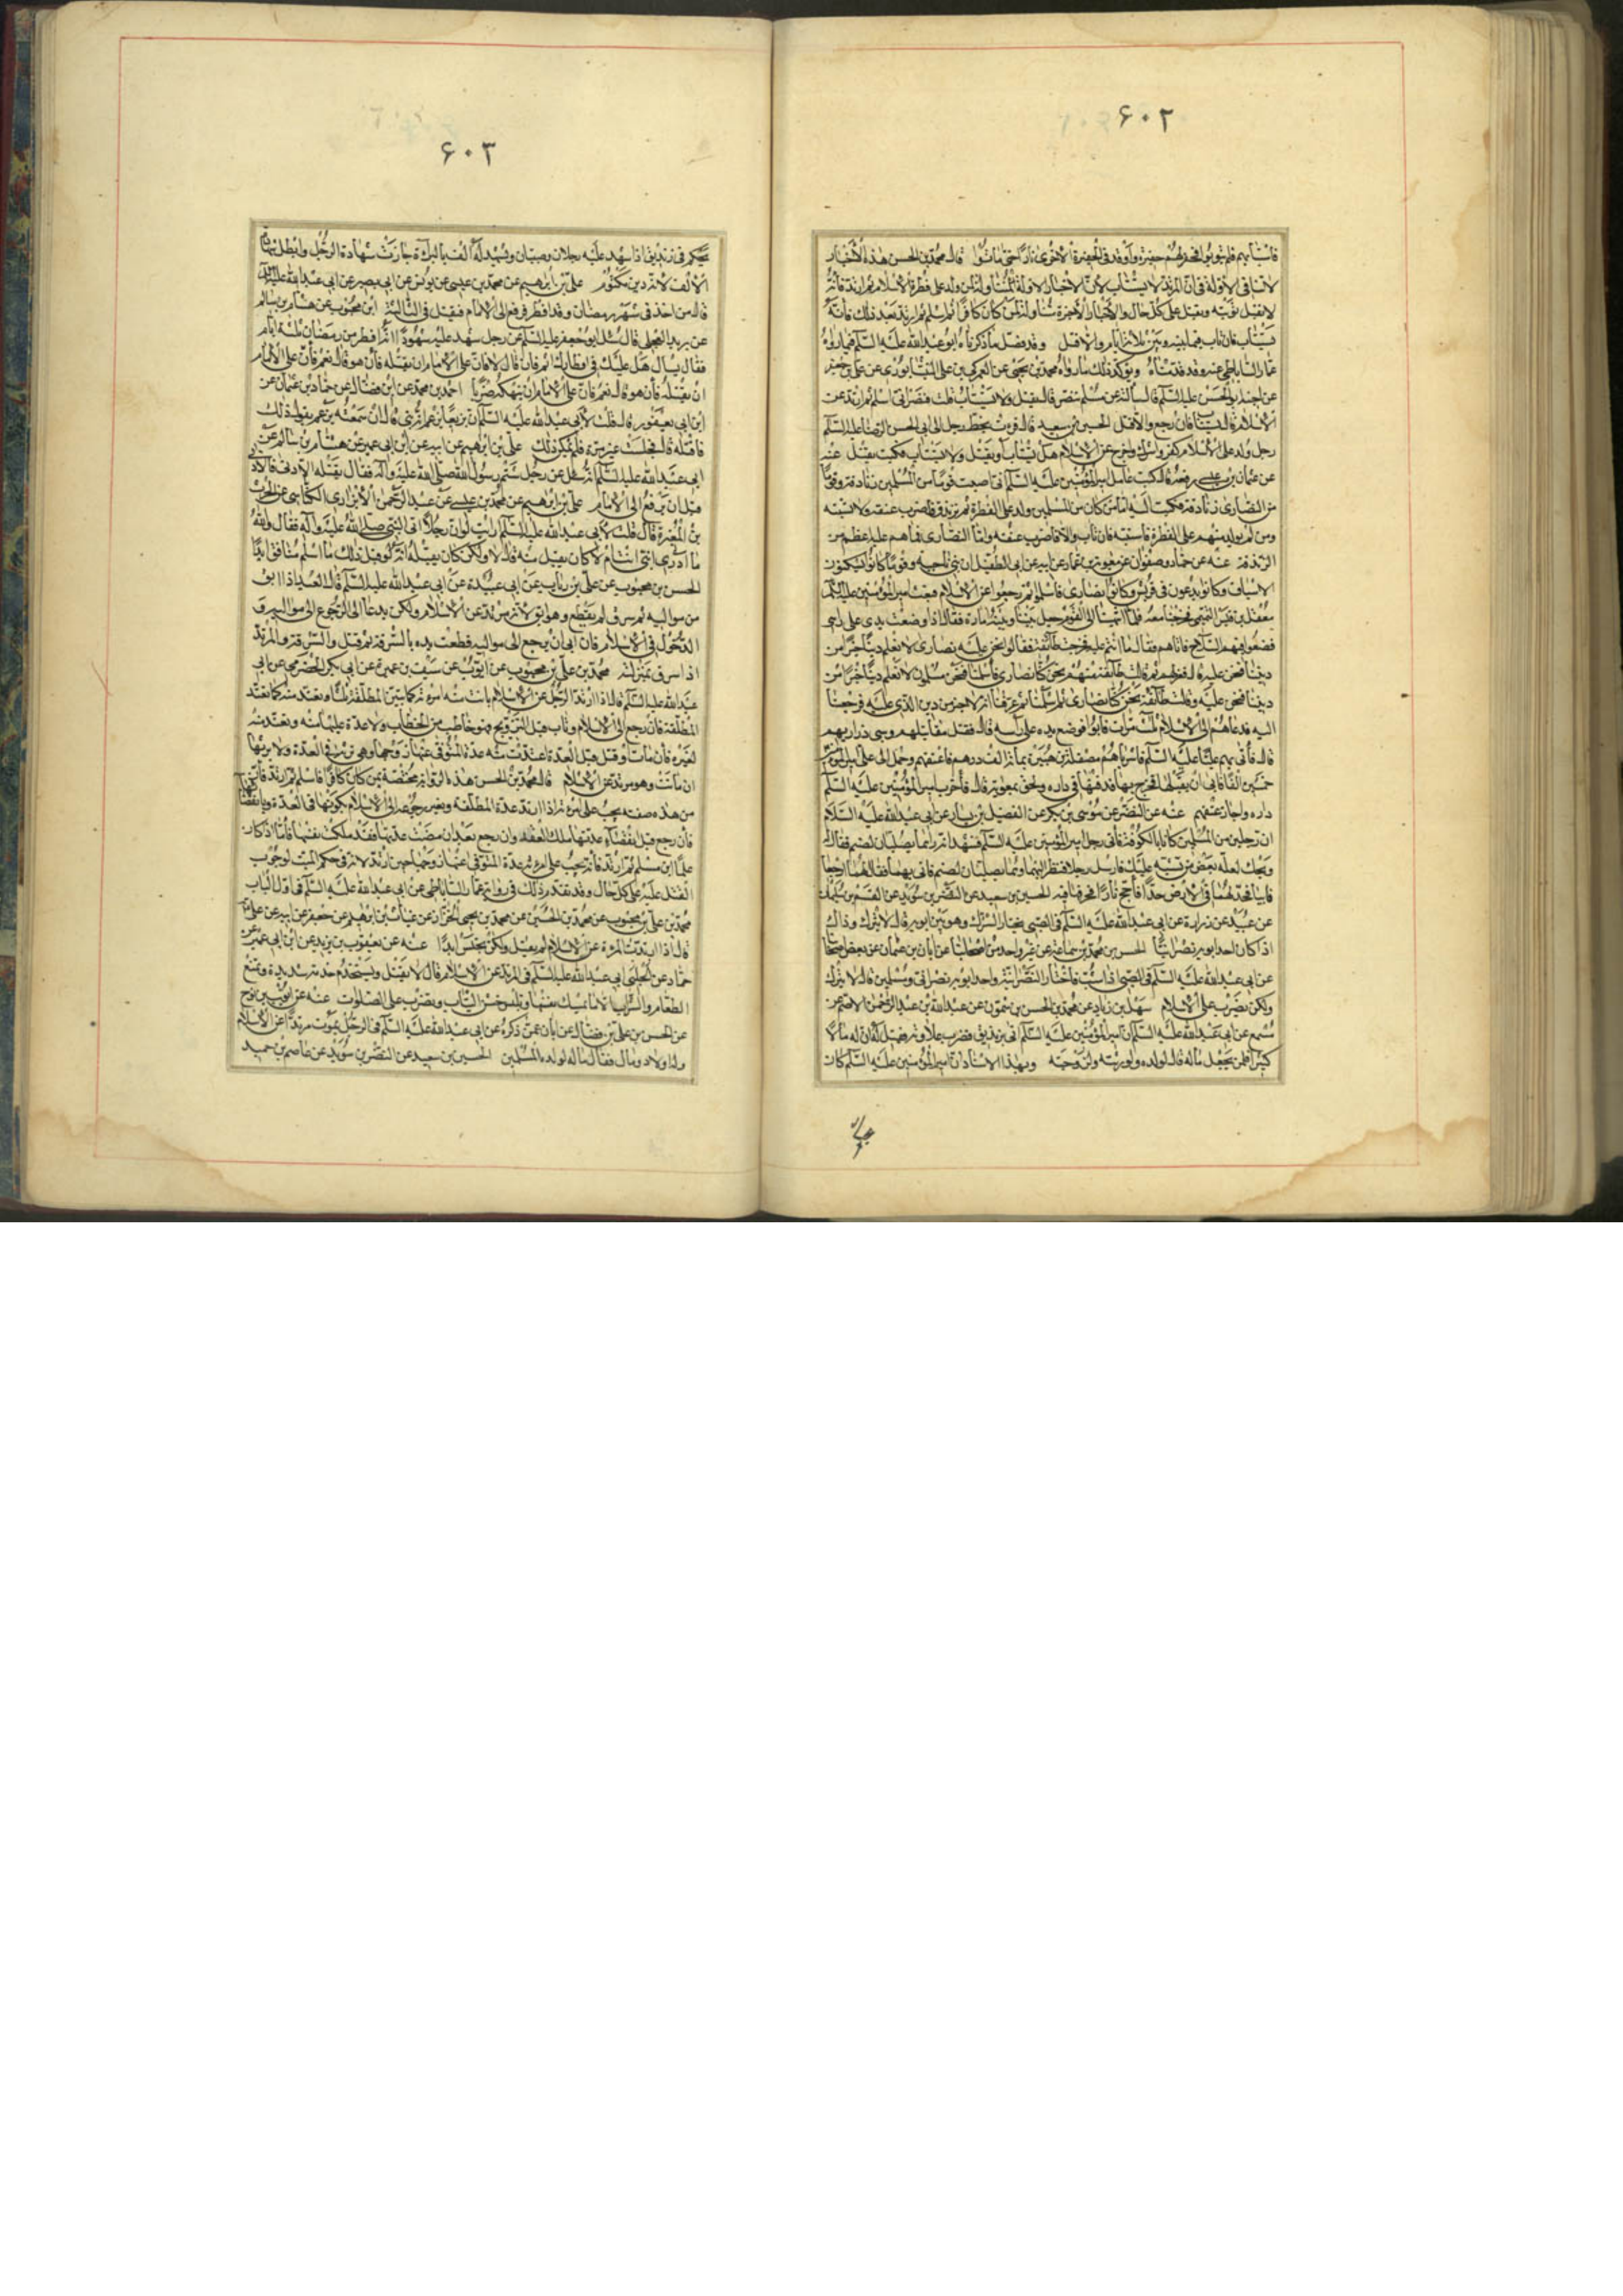 ۶۰۲
فاستتابهم فلم يتوبوا فحفر لهم حفيرة واوقد في الحفيرة الاخرى نارا حتى ماتوا قال محمد بن الحسن هذه الاخبار
لا تنافي الاولة في ان المرتد لا يستتاب لان الاخبار الاولة متناولة لمن ولد على فطرة الاسلام ثم ارتد فانه
لا تقبل توبته ويقتل على كل حال والاخبار الاخيرة متناولة لمن كان كافرا ثم اسلم ثم ارتد بعد ذلك فانه
يستتاب فان تاب فيما بينه وبين ثلاثة ايام والا قتل وقد فصل ما ذكرناه ابو عبد الله عليه السلم فيما رواه
عمار الساباطي عنه وقد قدمناه ويؤكد ذلك ما رواه محمد بن يحيى عن العمركي بن علي النيشابوري عن علي بن جعفر
عن اخيه ابي الحسن عليه السلم قال سالته عن مسلم تنصر قال يقتل ولا يستتاب قلت فنصراني اسلم ثم ارتد عن
الاسلام قال يستتاب فان رجع والا قتل الحسين بن سعيد قال قرأت بخط رجل الى ابي الحسن الرضا عليه السلم
رجل ولد على الاسلام ثم كفر واشرك وخرج عن الاسلام هل يستتاب او يقتل ولا يستتاب فكتب يقتل عنه
عن عثمان بن عيسى رفعه قال كتب عامل امير المؤمنين عليه السلم اني اصبت قوما من المسلمين زنادقة وقوما
من النصارى زنادقة فكتب اليه اما من كان من المسلمين ولد على الفطرة ثم تزندق فاضرب عنقه ولا تستتبه
ومن لم يولد منهم على الفطرة فاستتبه فان تاب والا فاضرب عنقه واما النصارى فما هم عليه اعظم من
الزندقة عنه عن حماد وصفوان عن معوية بن عمار عن ابيه عن ابي الطفيل ان بني ناجية وقوما كانوا يسكنون
الاسياف وكانوا يدعون في قريش وكانوا نصارى فاسلموا ثم رجعوا عن الاسلام فبعث امير المؤمنين عليه السلم
معقل بن قيس التميمي فخرجنا معه فلما انتهينا الى القوم جعل بيننا وبينه امارة فقال اذا وضعت يدي على راسي
فضعوا فيهم السلاح فاتاهم فقال ما انتم عليه فخرجت طائفة فقالوا نحن نصارى لا نعلم دينا خيرا من
ديننا فنحن عليه قال فعزلهم ثم قالت طائفة منهم نحن كنا نصارى فاسلمنا فنحن مسلمون لا نعلم دينا خيرا من
ديننا فنحن عليه وقالت طائفة نحن كنا نصارى ثم اسلمنا ثم عرفنا انه لا خير من دين الذي كنا عليه فرجعنا
اليه فدعاهم الى الاسلام ثلث مرات فابوا فوضع يده على رأسه قال فقتل مقاتليهم وسبى ذراريهم
قال فأتى بهم عليا عليه السلم فاشتراهم مصقلة بن هبيرة بمائة الف درهم فاعتقهم وحمل الى علي امير المؤمنين
خمسين الفا فابى ان يقبلها فخرج بها فدفنها في داره ولحق بمعوية قال فأخرب امير المؤمنين عليه السلم
داره واجاز عتقهم عنه عن النضر عن موسى بن بكر عن الفضيل بن يسار عن ابي عبد الله عليه السلام
ان رجلين من المسلمين كانا بالكوفة فأتى رجل امير المؤمنين عليه السلم فشهد انه رآهما يصليان لصنم فقال له
ويحك لعله بعض من تشبه عليك فارسل رجلا فنظر اليهما وهما يصليان لصنم فاتى بهما فقال لهما ارجعا
فابيا فخد لهما في الارض خدا فأجج نارا فطرحهما فيه الحسين بن سعيد عن النضر بن سويد عن القسم بن سليمان
عن عبيد بن زرارة عن ابي عبد الله عليه السلم في الصبي يختار الشرك وهو بين ابويه قال لا يترك وذاك
اذا كان احد ابويه نصرانيا الحسن بن محمد بن سماعة عن غير واحد من اصحابنا عن ابان بن عثمان عن بعض اصحابنا
عن ابي عبد الله عليه السلم في الصبي اذا شب فاختار النصرانية واحد ابويه نصراني او مسلمين قال لا يترك
ولكن يضرب على الاسلام سهل بن زياد عن محمد بن الحسن بن شمون عن عبد الله بن عبد الرحمن الاصم عن
مسمع عن ابي عبد الله عليه السلم ان امير المؤمنين عليه السلم اتى بزنديق فضرب علاوته فقيل له ان له مالا
كثيرا فلمن يجعل ماله قال لولده ولورثته ولزوجته وبهذا الاسناد ان امير المؤمنين عليه السلم كان
۶۰۳
يحكم في زنديق اذا شهد عليه رجلان وشهد له الف بالبراءة جازت شهادة الرجلين وابطل شهادة
الالف لانه دين مكتوم علي بن ابرهيم عن محمد بن عيسى عن يونس عن ابي بصير عن ابي عبد الله عليه السلم
قال من اخذ في شهر رمضان وقد افطر فرفع الى الامام فيقتل في الثالثة ابن محبوب عن هشام بن سالم
عن بريد العجلي قال سئل ابو جعفر عليه السلم عن رجل شهد عليه شهود انه افطر من رمضان ثلثة ايام
فقال يسال هل عليك في افطارك اثم فان قال لا فان على الامام ان يقتله فأن هو قال نعم فأن على الامام
ان ينهكه ضربا احمد بن محمد عن ابن فضال عن حماد بن عثمان عن
ابن ابي يعفور قال قلت لابي عبد الله عليه السلم ان بزيعا يزعم انه نبي قال ان سمعته يقول ذلك
فاقتله قال فجلست غير مرة فلم يمكني ذلك علي بن ابرهيم عن ابيه عن ابن ابي عمير عن هشام بن سالم عن
ابي عبد الله عليه السلم انه سئل عن رجل شتم رسول الله صلى الله عليه وآله فقال يقتله الادنى فالادنى
قبل ان يرفع الى الامام علي بن ابرهيم عن محمد بن عيسى عن عبد الرحمن الابزاري الكناسي عن الحرث
بن المغيرة قال قلت لابي عبد الله عليه السلم رايت لو ان رجلا اتى النبي صلى الله عليه وآله فقال والله
ما ادري انبي انت ام لا كان يقبل منه قال لا ولكن كان يقتله انه لو قبل ذلك ما اسلم منافق ابدا
الحسن بن محبوب عن علي بن رياب عن ابي عبيدة عن ابي عبد الله عليه السلم قال العبد اذا ابق
من مواليه ثم سرق لم يقطع وهو ابق لانه مرتد عن الاسلام ولكن يدعا الى الرجوع الى مواليه و
الدخول في الاسلام فان ابى ان يرجع الى مواليه قطعت يده بالسرقة ثم قتل والمرتد
اذا سرق بمنزلته محمد بن علي بن محبوب عن ايوب عن سيف بن عميرة عن ابي بكر الحضرمي عن ابي
عبد الله عليه السلم قال اذا ارتد الرجل عن الاسلام بانت منه امرئته كما تبين المطلقة ثلثا وتعتد منه كما تعتد
المطلقة فان رجع الى الاسلام وتاب قبل التزويج فهو خاطب من الخطاب ولا عدة عليها منه وتعتد منه
لغيره فأن مات او قتل قبل العدة اعتدت منه عدة المتوفى عنها زوجها وهي ترثه في العدة ولا يرثها
ان ماتت وهو مرتد عن الاسلام قال محمد بن الحسن هذه الرواية مختصة بمن كان كافرا فاسلم ثم ارتد فأنه
من هذه صفته يجب على امرئته اذا ارتد عدة المطلقة ويعتبر رجوعه الى الاسلام بكونها في العدة وبانقضائها
فأن رجع قبل انقضاء عدتها ملك العقد وان رجع بعد ان مضت عدتها فقد ملكت نفسها فأما اذا كان
مسلما ابن مسلم ثم ارتد فأنه يجب على امرئته عدة المتوفى عنها زوجها حين ارتد لانه في حكم الميت لوجوب
القتل عليه على كل حال وقد تقدم ذلك في رواية عمار الساباطي عن ابي عبد الله عليه السلم في اول الباب
محمد بن علي بن محبوب عن محمد بن الحسين عن محمد بن يحيى الخزاز عن غياث بن ابرهيم عن جعفر عن ابيه عن علي
قال اذا ارتدت المرءة عن الاسلام لم تقتل ولكن تحبس ابدا عنه عن يعقوب بن يزيد عن ابن ابي عمير عن
حماد عن الحلبي ابي عبد الله عليه السلم في المرتدة عن الاسلام قال لا تقتل وتستخدم خدمة شديدة وتمنع
الطعام والشراب الا ما تمسك نفسها وتلبس خشن الثياب وتضرب على الصلوات عنه عن ايوب بن نوح
عن الحسن بن علي بن فضال عن ابان عمن ذكره عن ابي عبد الله عليه السلم في الرجل يموت مرتدا عن الاسلام
وله اولاد ومال فقال ماله لولده المسلمين الحسين بن سعيد عن النضر بن سويد عن عاصم بن حميد